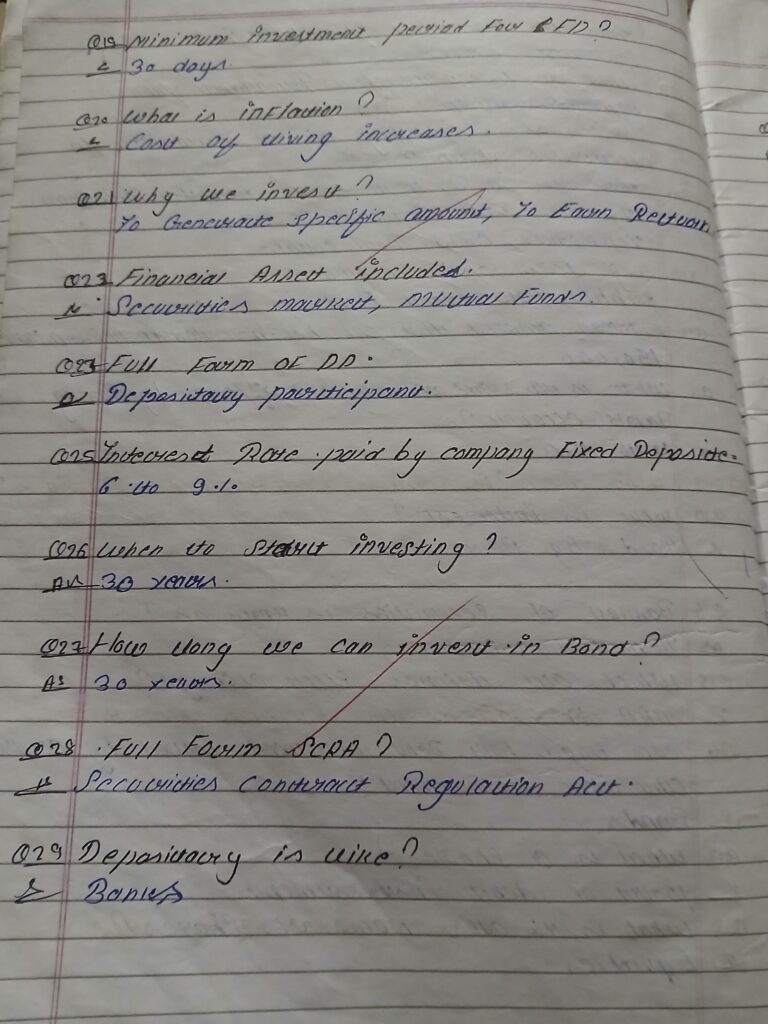 Q19 Minimum investment period For FD?
30 days.
Q20 What is inflation?
Cost of living increases.
Q21 Why we invest?
To Generate specific amount, To Earn Return
Q23 Financial Asset included.
Securities market, Mutual Funds.
Full Form OF DD.
Depositary participant.
Q25 Interest Rate paid by company Fixed Deposite.
6 to 9%
Q26 When to start investing?
30 years.
Q27 How long we can invest in Bond?
As 30 years.
Q28 Full Form SCRA?
Securities Contract Regulation Act.
Q29 Depositary is like?
Banks